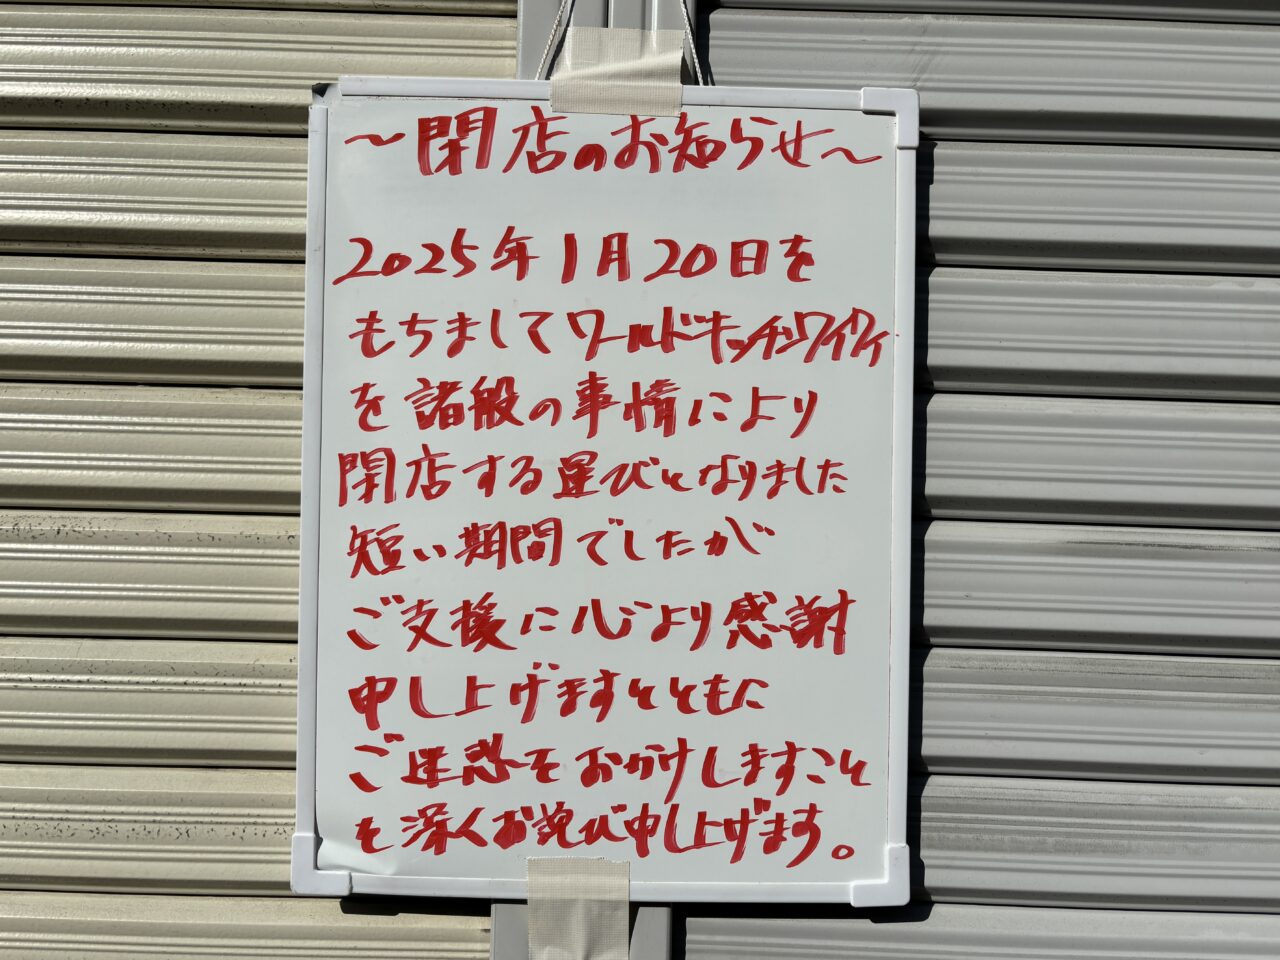 ～閉店のお知らせ～
2025年1月20日を
もちましてワールドキッチンワイワイ
を諸般の事情により
閉店する運びとなりました
短い期間でしたが
ご支援に心より感謝
申し上げますとともに
ご迷惑をおかけしますこと
を深くお詫び申し上げます。